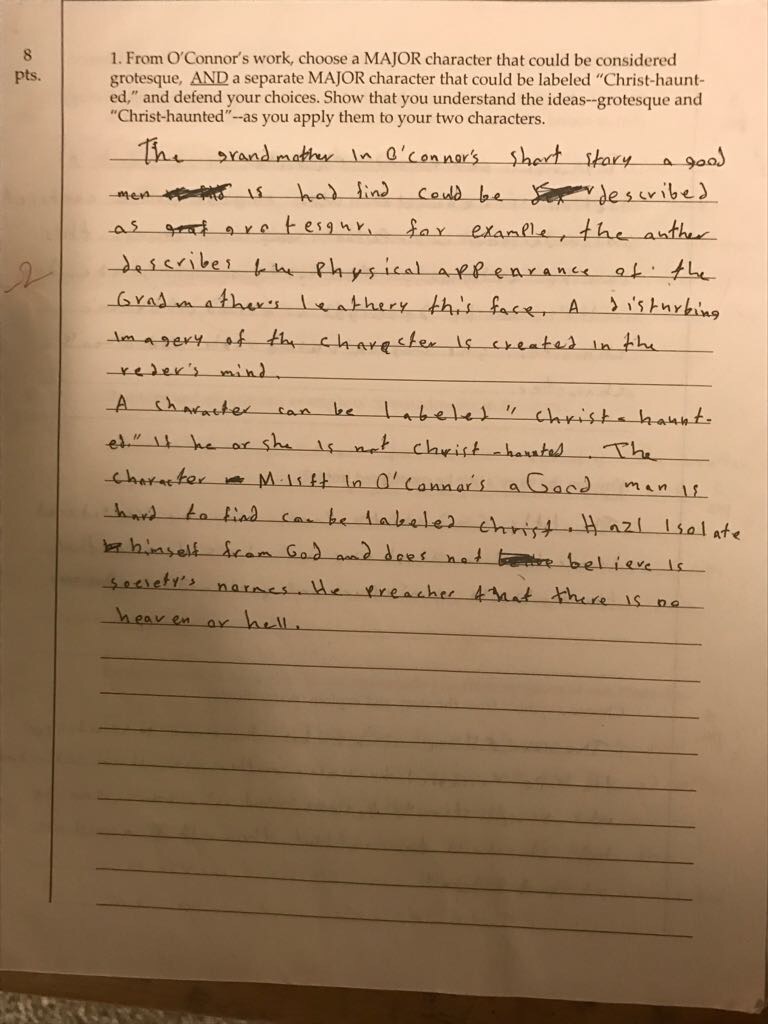 8
pts.
1. From O'Connor's work, choose a MAJOR character that could be considered
grotesque, AND a separate MAJOR character that could be labeled "Christ-haunt-
ed," and defend your choices. Show that you understand the ideas--grotesque and
"Christ-haunted"--as you apply them to your two characters.
The grandmother In O'connor's short story a good
men is had find could be described
as grotesqur. for example, the anther
2
describes the physical appearance of the
Gradmother's leathery this face. A disturbing
Imagery of the character Is created in the
reder's mind.
A character can be labeled "christ-haunt-
ed." If he or she Is not Christ-haunted. The
character Misft In O'Connor's a Good man is
hard to find can be labeled christ. Hazl Isolate
himself from God and does not believe Is
society's normes. He preacher that there is no
heaven or hell.